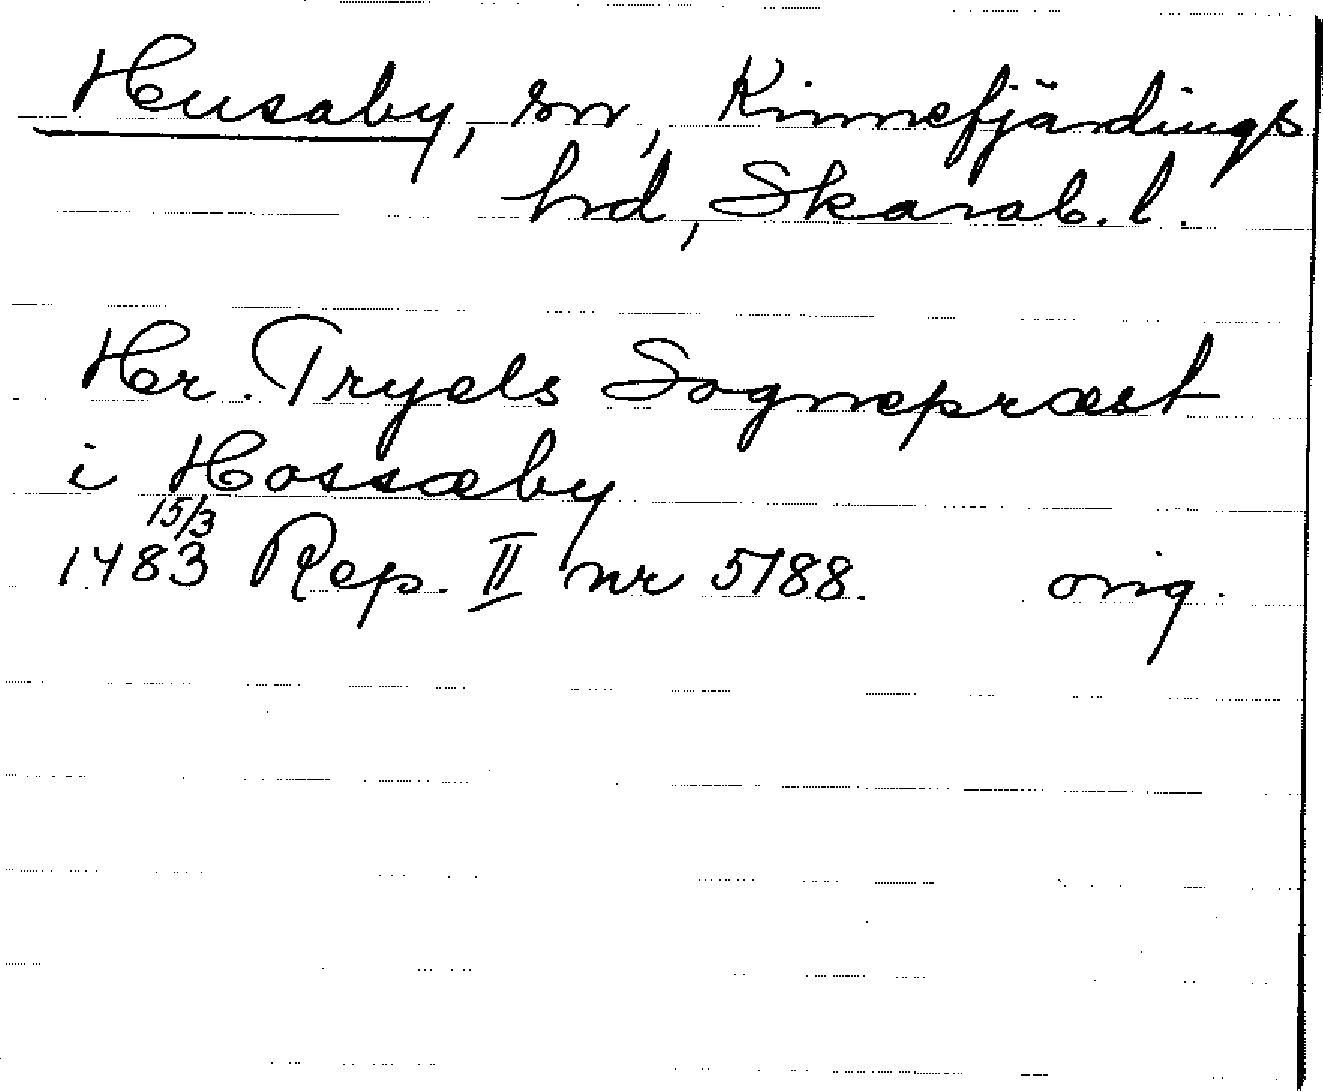 Husaby, sn, Kinnefjärdings
hrd, Skarab. l.
Her. Tryels Sognepræst
i Hossæby
15/3
1483 Rep. II nr 5788. orig.